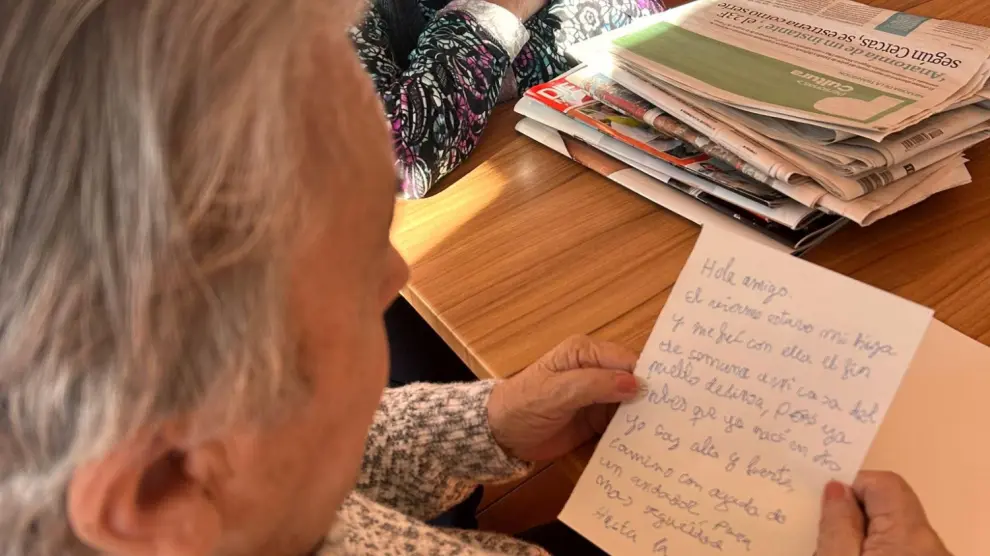 'Anatomía de un instante', el 23F
según Cercas, se estrena como serie
Cultura
Hola amigo.
El viernes estuvo mi hija
y me fui con ella el fin
de semana a mi casa del
pueblo de Lirza, pero ya
sabes que yo nací en Oro
yo soy alto y fuerte,
camino con ayuda de
un andador para
mas seguridad
Hasta la